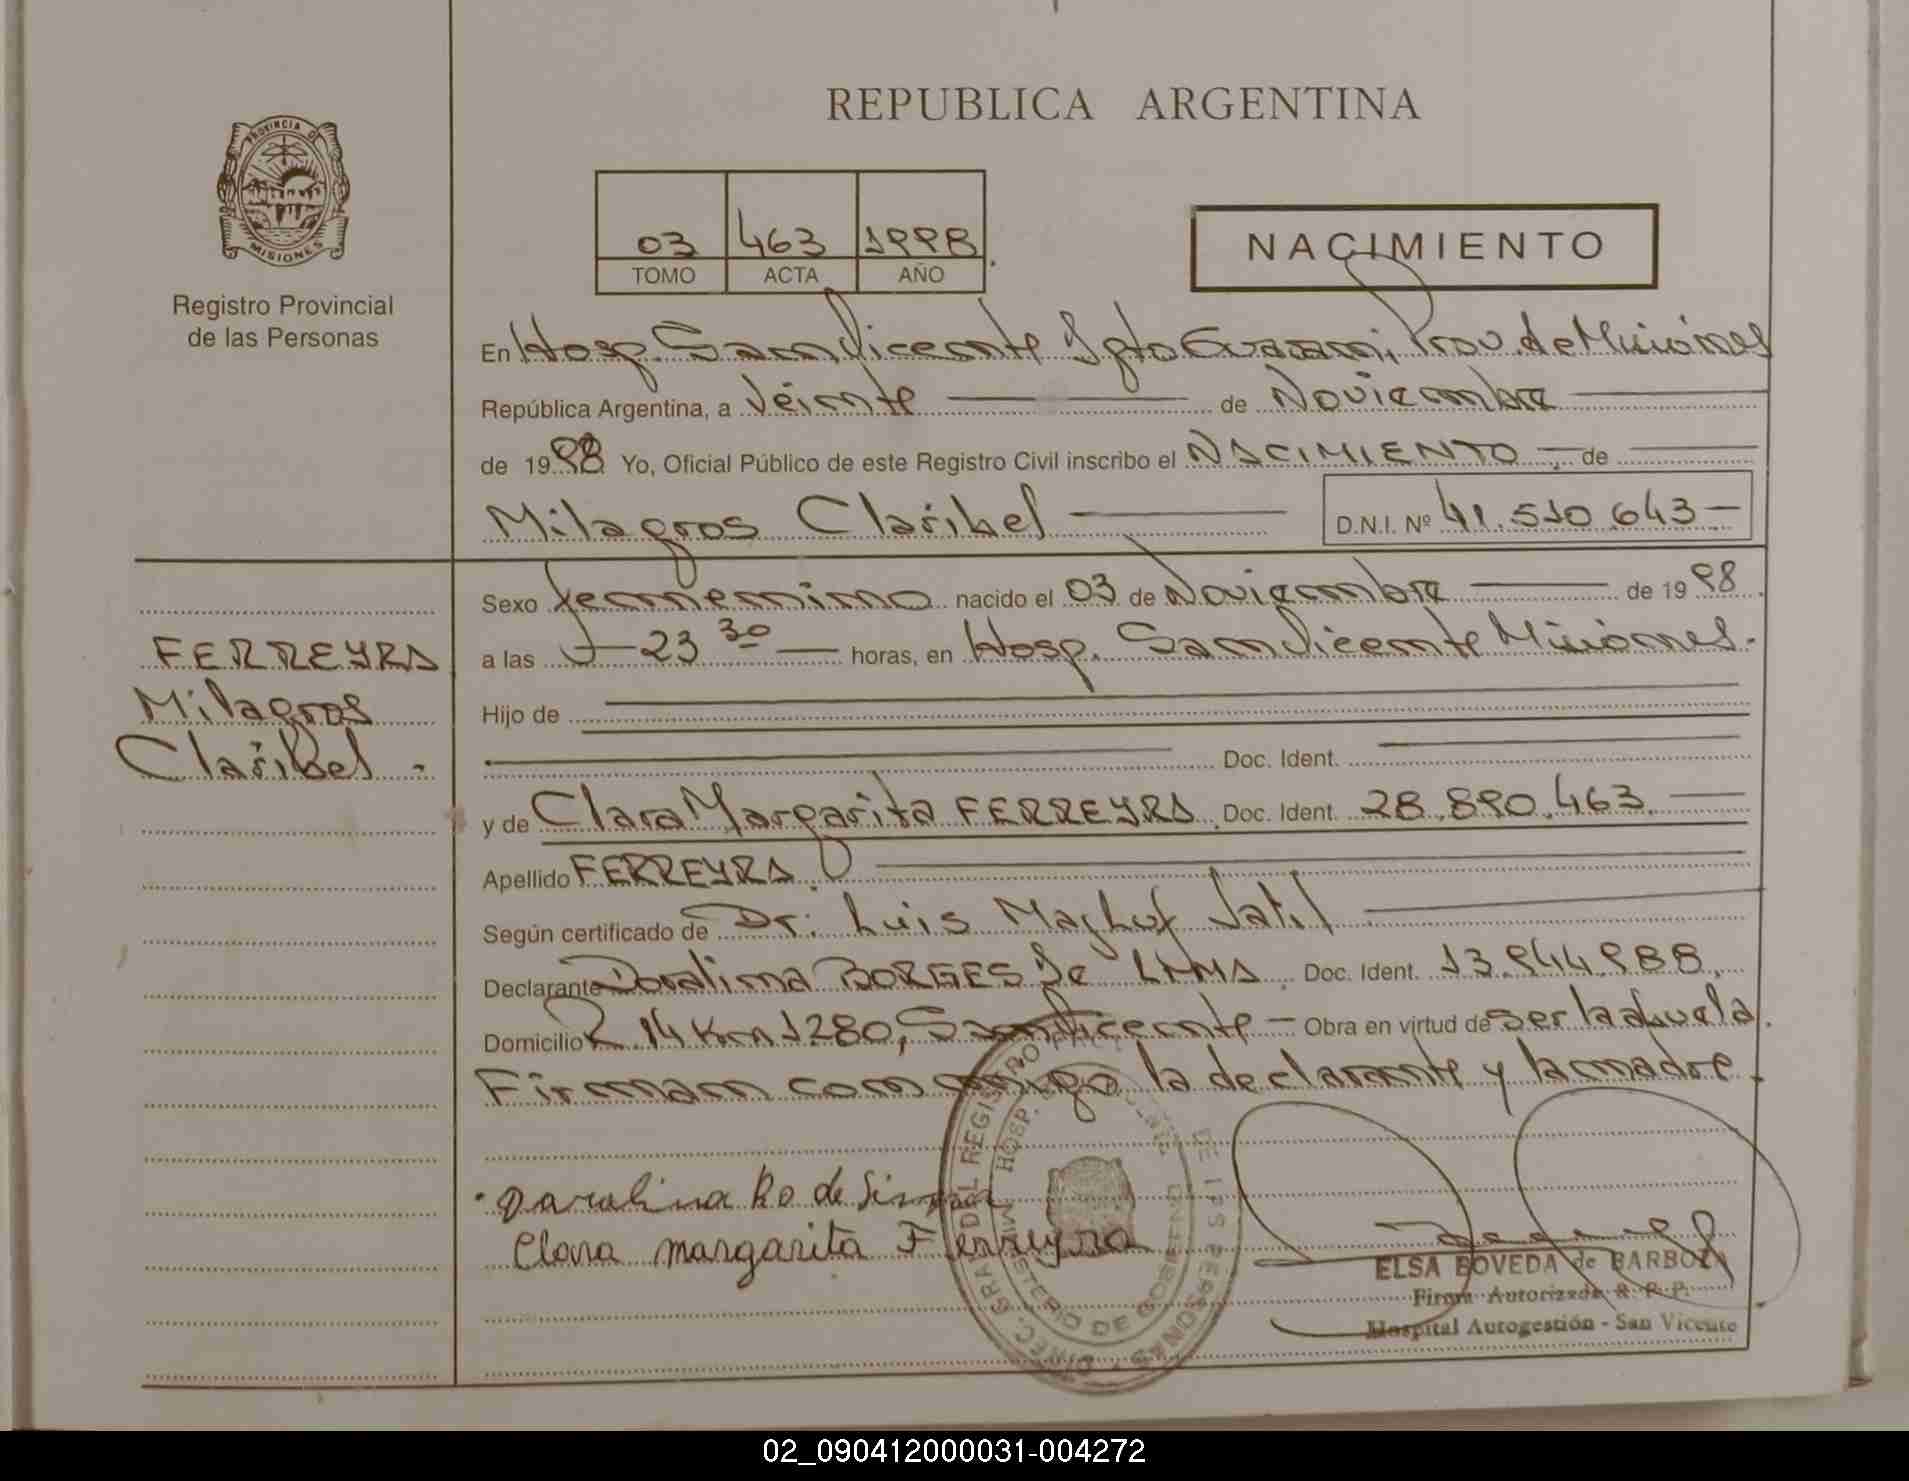 REPUBLICA ARGENTINA
PROVINCIA D
MISIONES
Registro Provincial
de las Personas
03 463 1998
TOMO ACTA AÑO
NACIMIENTO
En Hosp. San Vicente Dpto Guarani, Prov. de Misiones
República Argentina, a Veinte de Noviembre
de 1998 Yo, Oficial Público de este Registro Civil inscribo el NACIMIENTO de
Milagros Claribel D.N.I. Nº 41.510.643
Sexo femenino nacido el 03 de Noviembre de 1998
FERREYRA
a las 23 30 horas, en Hosp. San Vicente Misiones.
Milagros
Hijo de
Claribel
Doc. Ident.
y de Clara Margarita FERREYRA Doc. Ident. 28.890.463
Apellido FERREYRA
Según certificado de Dr. Luis
Declarante BORGES de Doc. Ident. 13.944.988
Domicilio R. 14 Km 1280, San Vicente - Obra en virtud de ser la abuela.
Firman conmigo la declarante y la madre.
de
Clara margarita Ferreyra
DIREC. GRAL DEL REGISTRO DE LAS PERSONAS
HOSP.
MINISTERIO DE GOBIERNO
ELSA BOVEDA de BARBOZA
Firma Autorizada R. P. P.
Hospital Autogestión - San Vicente
02_090412000031-004272